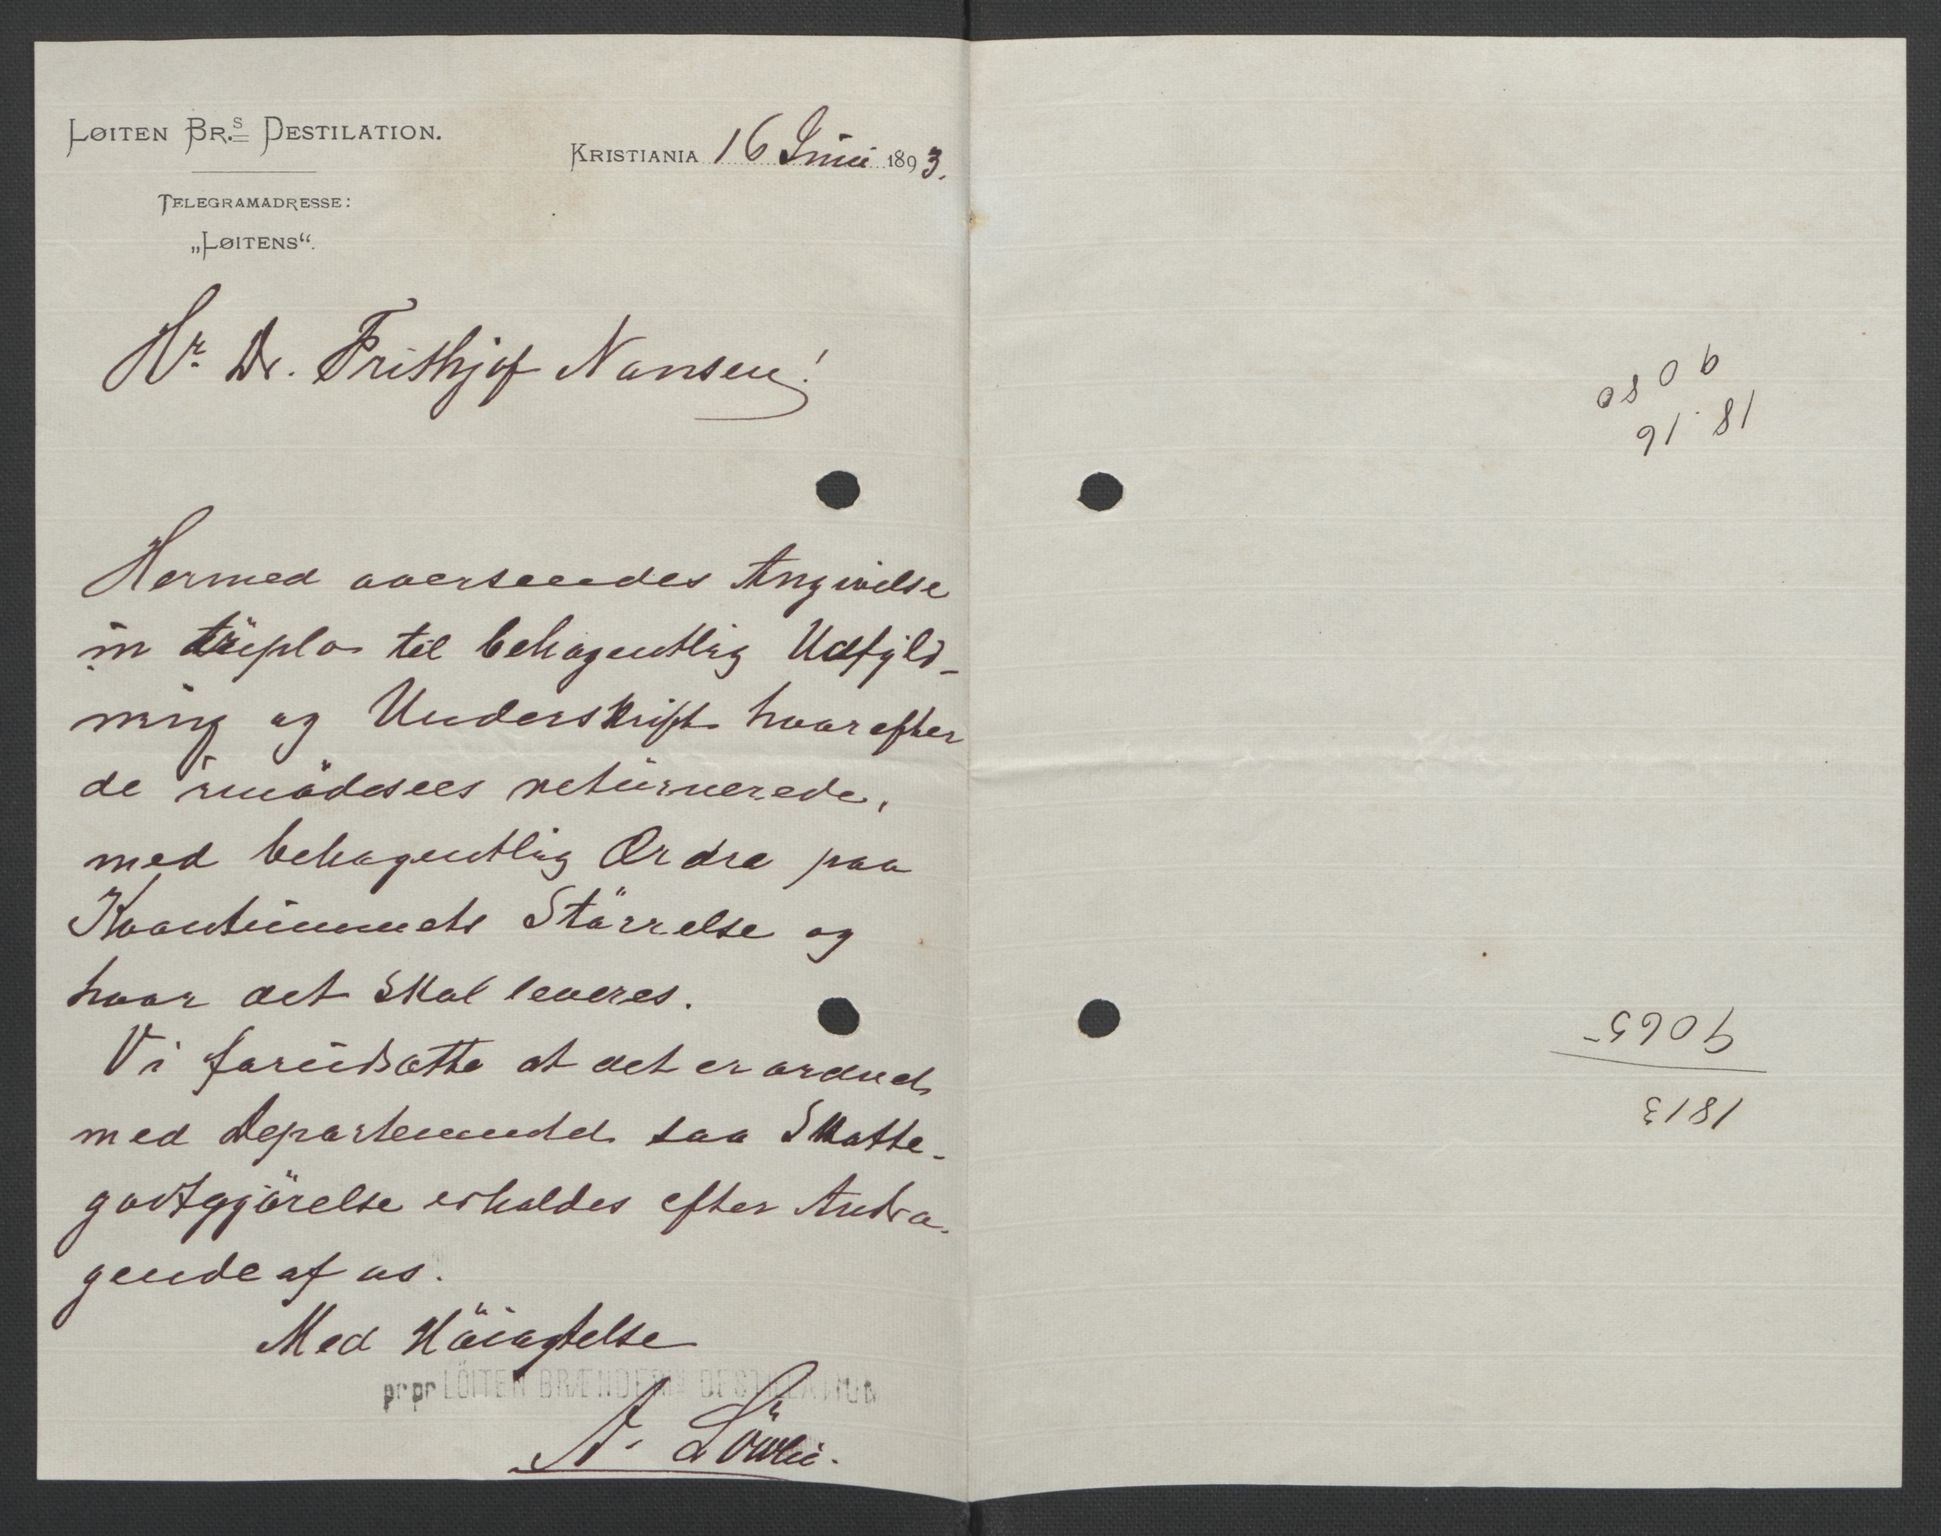 LØITEN BR.S DESTILATION.
KRISTIANIA 16 Juni 1893.
TELEGRAMADRESSE:
„LØITENS“.
Hr. Dr. Frithjof Nansen!
Hermed oversendes Angivelse
in triplo til behagentlig Udfyld-
ning og Underskrift hvorefter
de imödesees returnerede,
med behagentlig Ordre paa
Kvantummets Störrelse og
hvor det skal leveres.
Vi forudsætte at det er ordnet
med Departementet saa Skatte-
godtgjörelse erholdes efter Andra-
gende af os.
Med Höiagtelse
pr pr LÖITEN BRÆNDERIS DESTILLATION
A. Lövlie.
18.16
9080
1813
9065